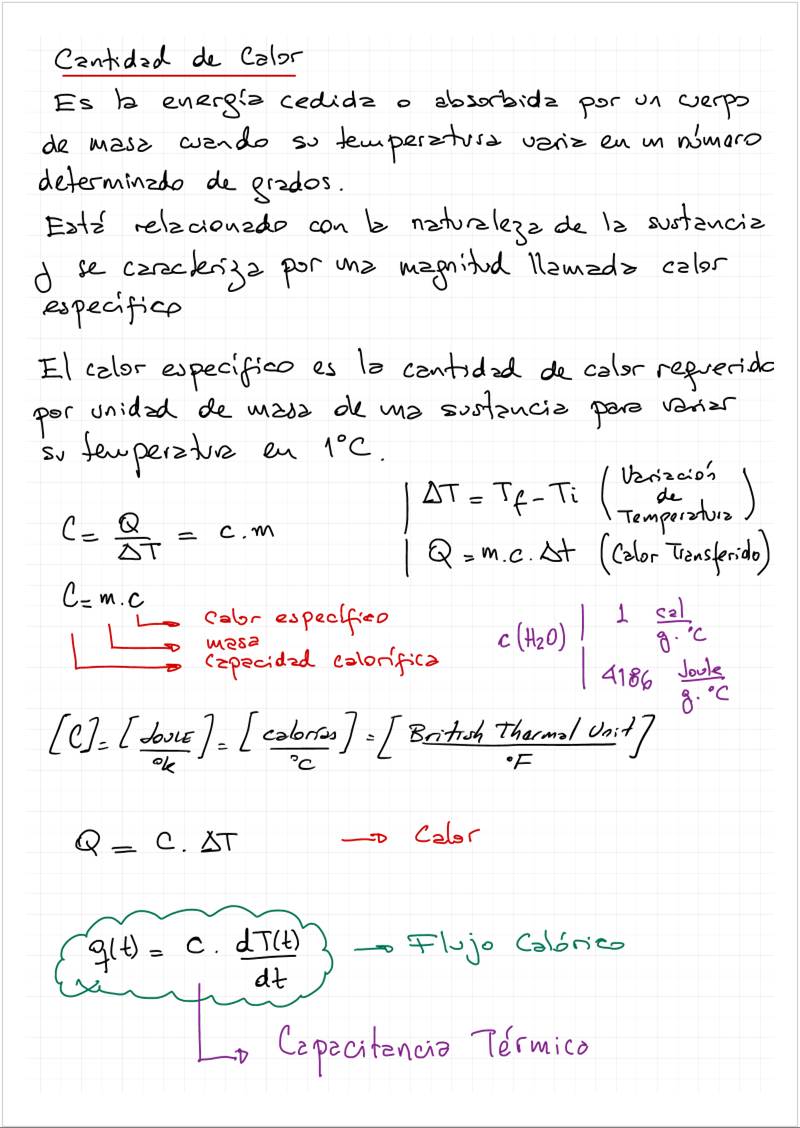 Cantidad de Calor
Es la energía cedida o absorbida por un cuerpo
de masa cuando su temperatura varia en un número
determinado de grados.
Está relacionado con la naturaleza de la sustancia
y se caracteriza por una magnitud llamada calor
específico
El calor específico es la cantidad de calor requerido
por unidad de masa de una sustancia para variar
su temperatura en 1°C.
C = Q/ΔT = c.m
ΔT = Tf - Ti (Variación de Temperatura)
Q = m.c.Δt (Calor Transferido)
C = m.c
Calor específico
masa
Capacidad calorífica
c(H2O) | 1 cal/g.°C
| 4186 Joule/g.°C
[C] = [Joule/°k] = [calorías/°C] = [British Thermal Unit/°F]
Q = C.ΔT → Calor
q(t) = C . dT(t)/dt → Flujo Calórico
→ Capacitancia Térmico